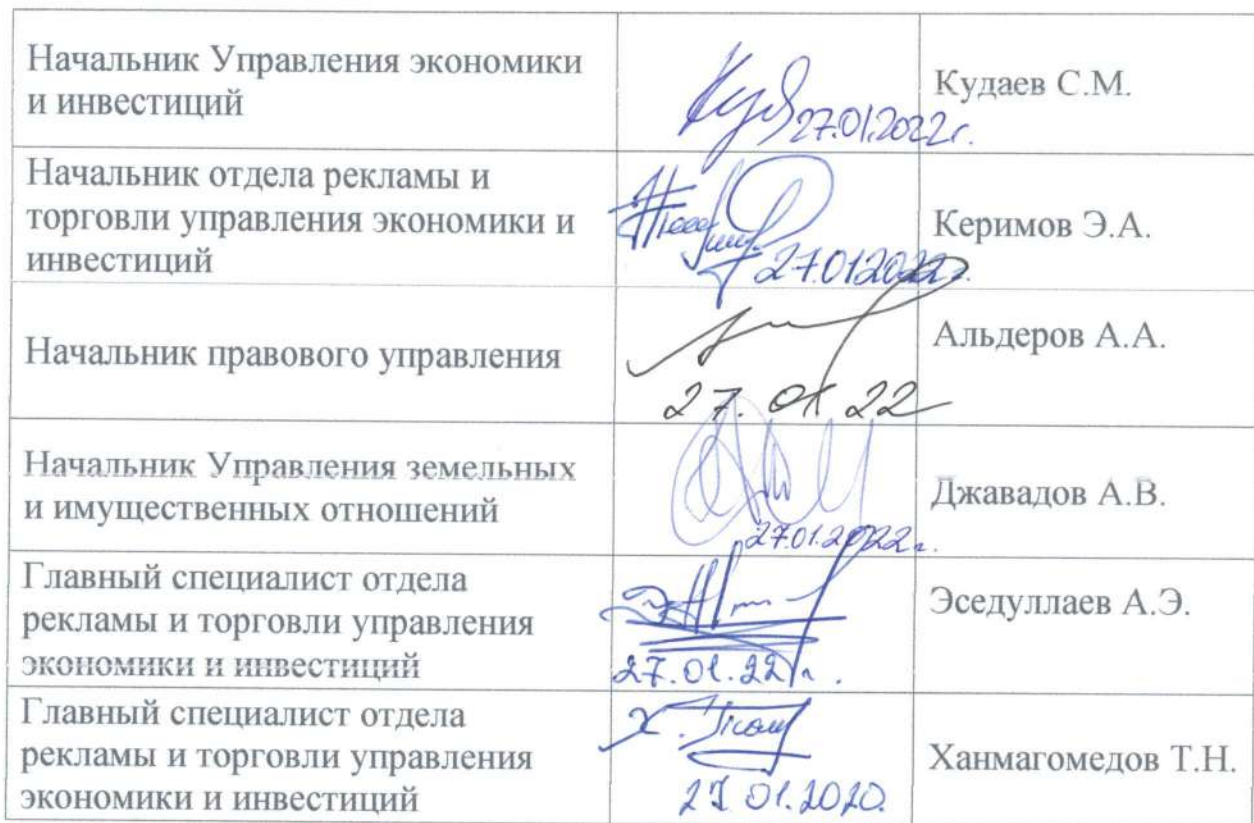 Начальник Управления экономики
и инвестиций
27.01.2022г.
Кудаев С.М.
Начальник отдела рекламы и
торговли управления экономики и
инвестиций
27.01.2022г.
Керимов Э.А.
Начальник правового управления
27.01.22
Альдеров А.А.
Начальник Управления земельных
и имущественных отношений
27.01.2022г.
Джавадов А.В.
Главный специалист отдела
рекламы и торговли управления
экономики и инвестиций
27.01.22г.
Эседуллаев А.Э.
Главный специалист отдела
рекламы и торговли управления
экономики и инвестиций
27.01.2020.
Ханмагомедов Т.Н.